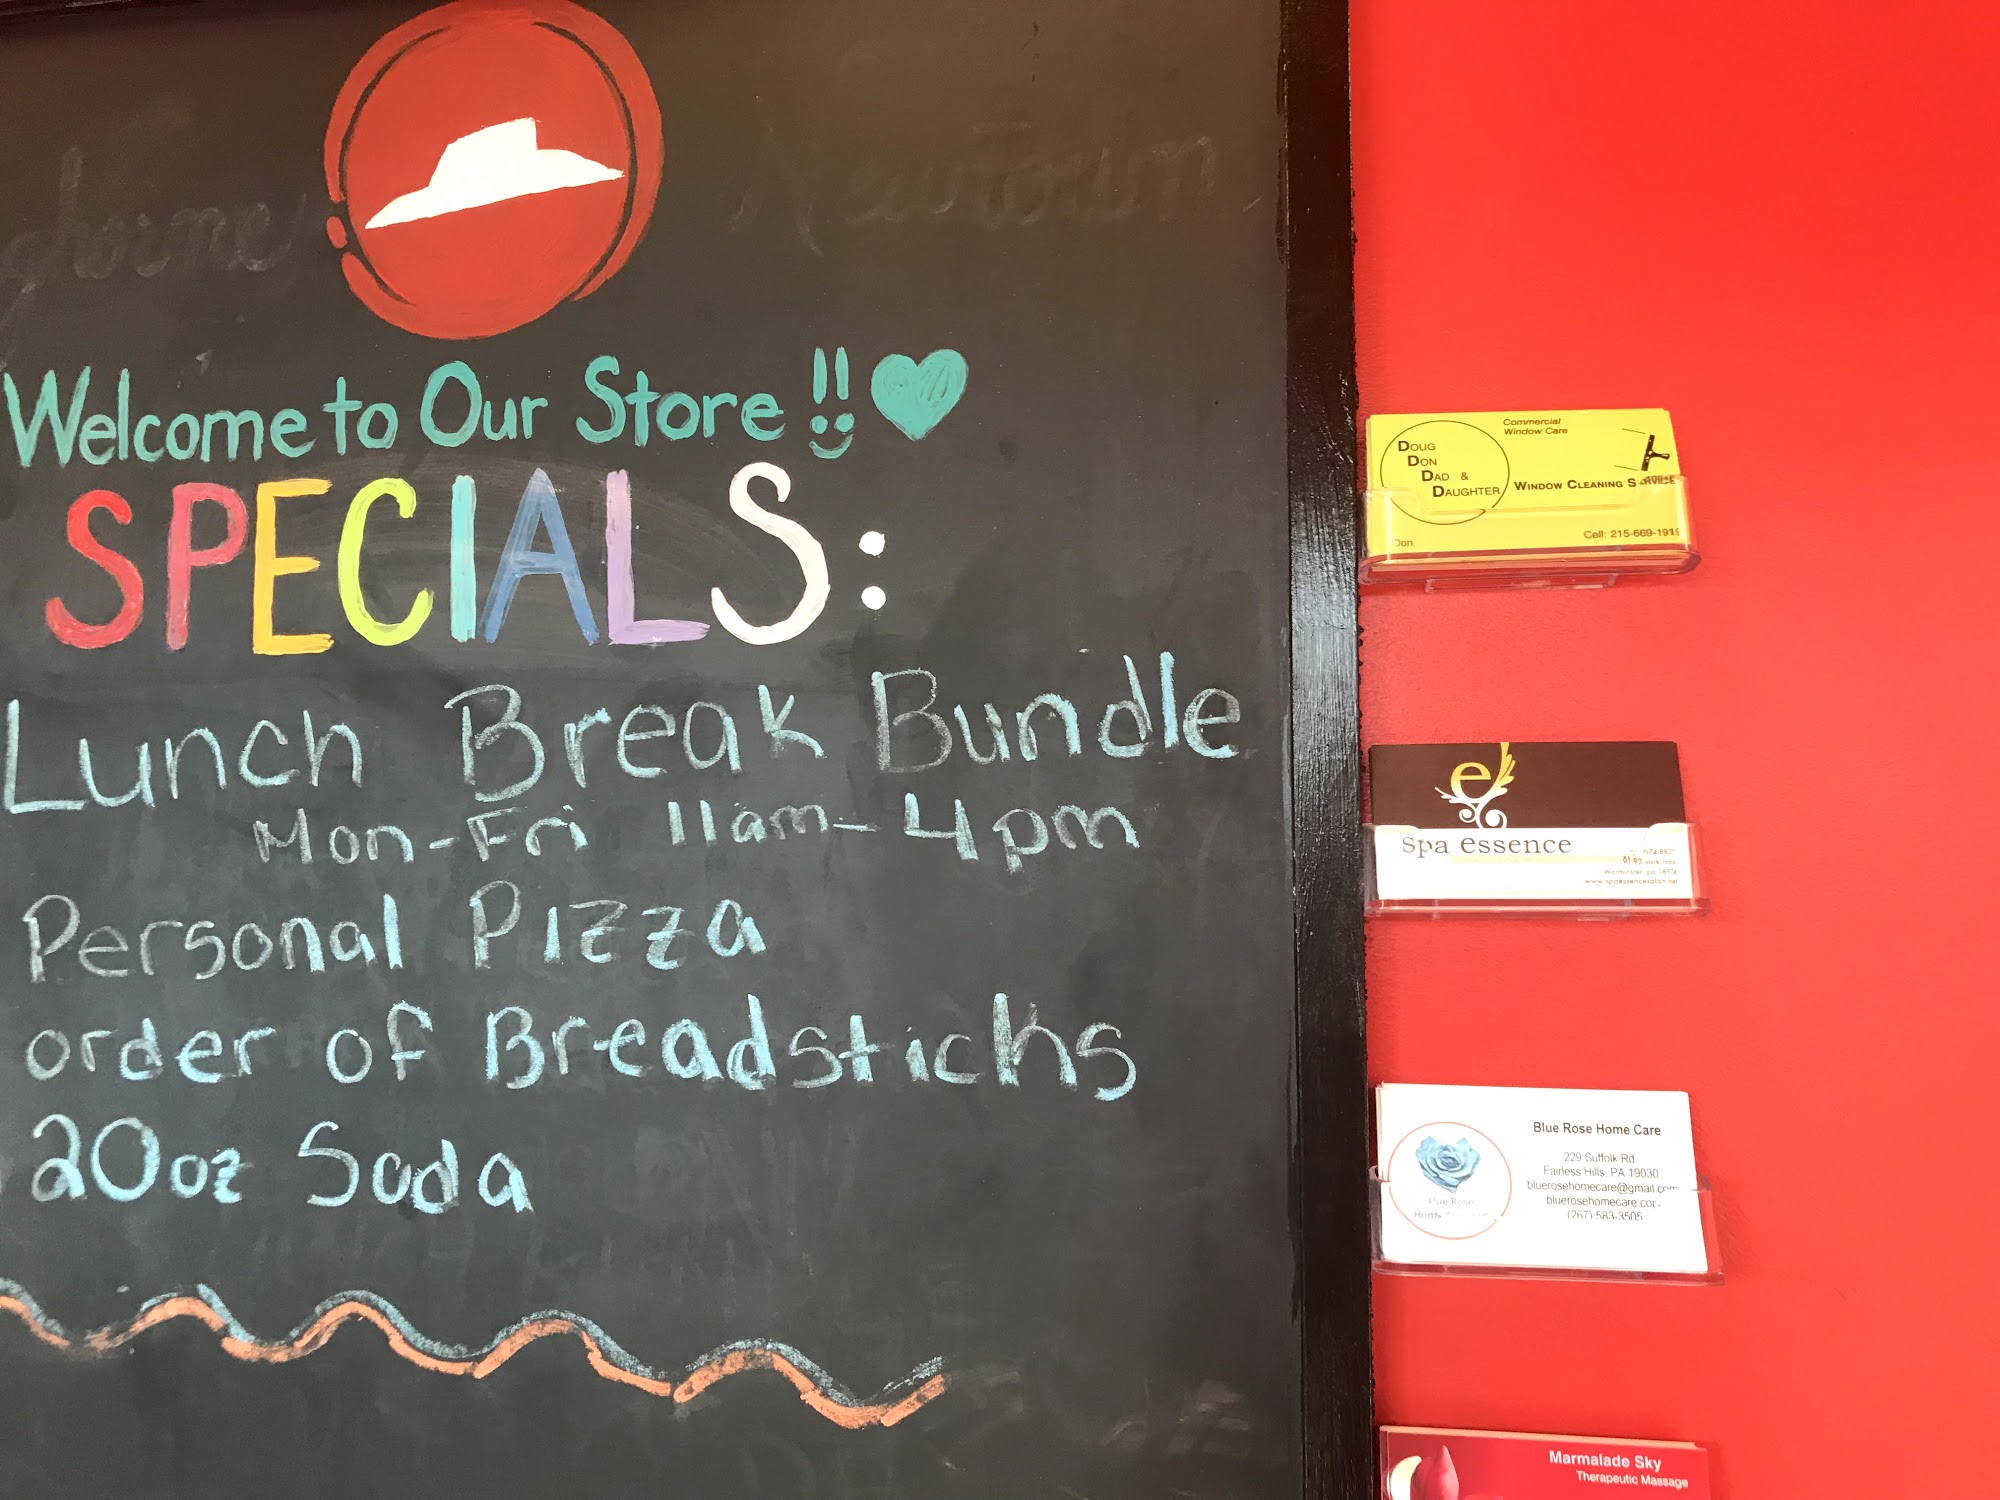 Welcome to Our Store !!
SPECIALS:
Lunch Break Bundle
Mon-Fri 11am-4pm
Personal Pizza
order of Breadsticks
20oz Soda
Commercial
Window Care
Doug
Don
Dad &
Daughter
Window Cleaning Service
Don
Cell: 215-669-1919
e
spa essence
Warminster, pa 18974
www.spaessencesalon.net
Blue Rose Home Care
229 Suffolk Rd
Fairless Hills, PA 19030
bluerosehomecare@gmail.com
bluerosehomecare.com
(267) 583-3505
Blue Rose
Marmalade Sky
Therapeutic Massage